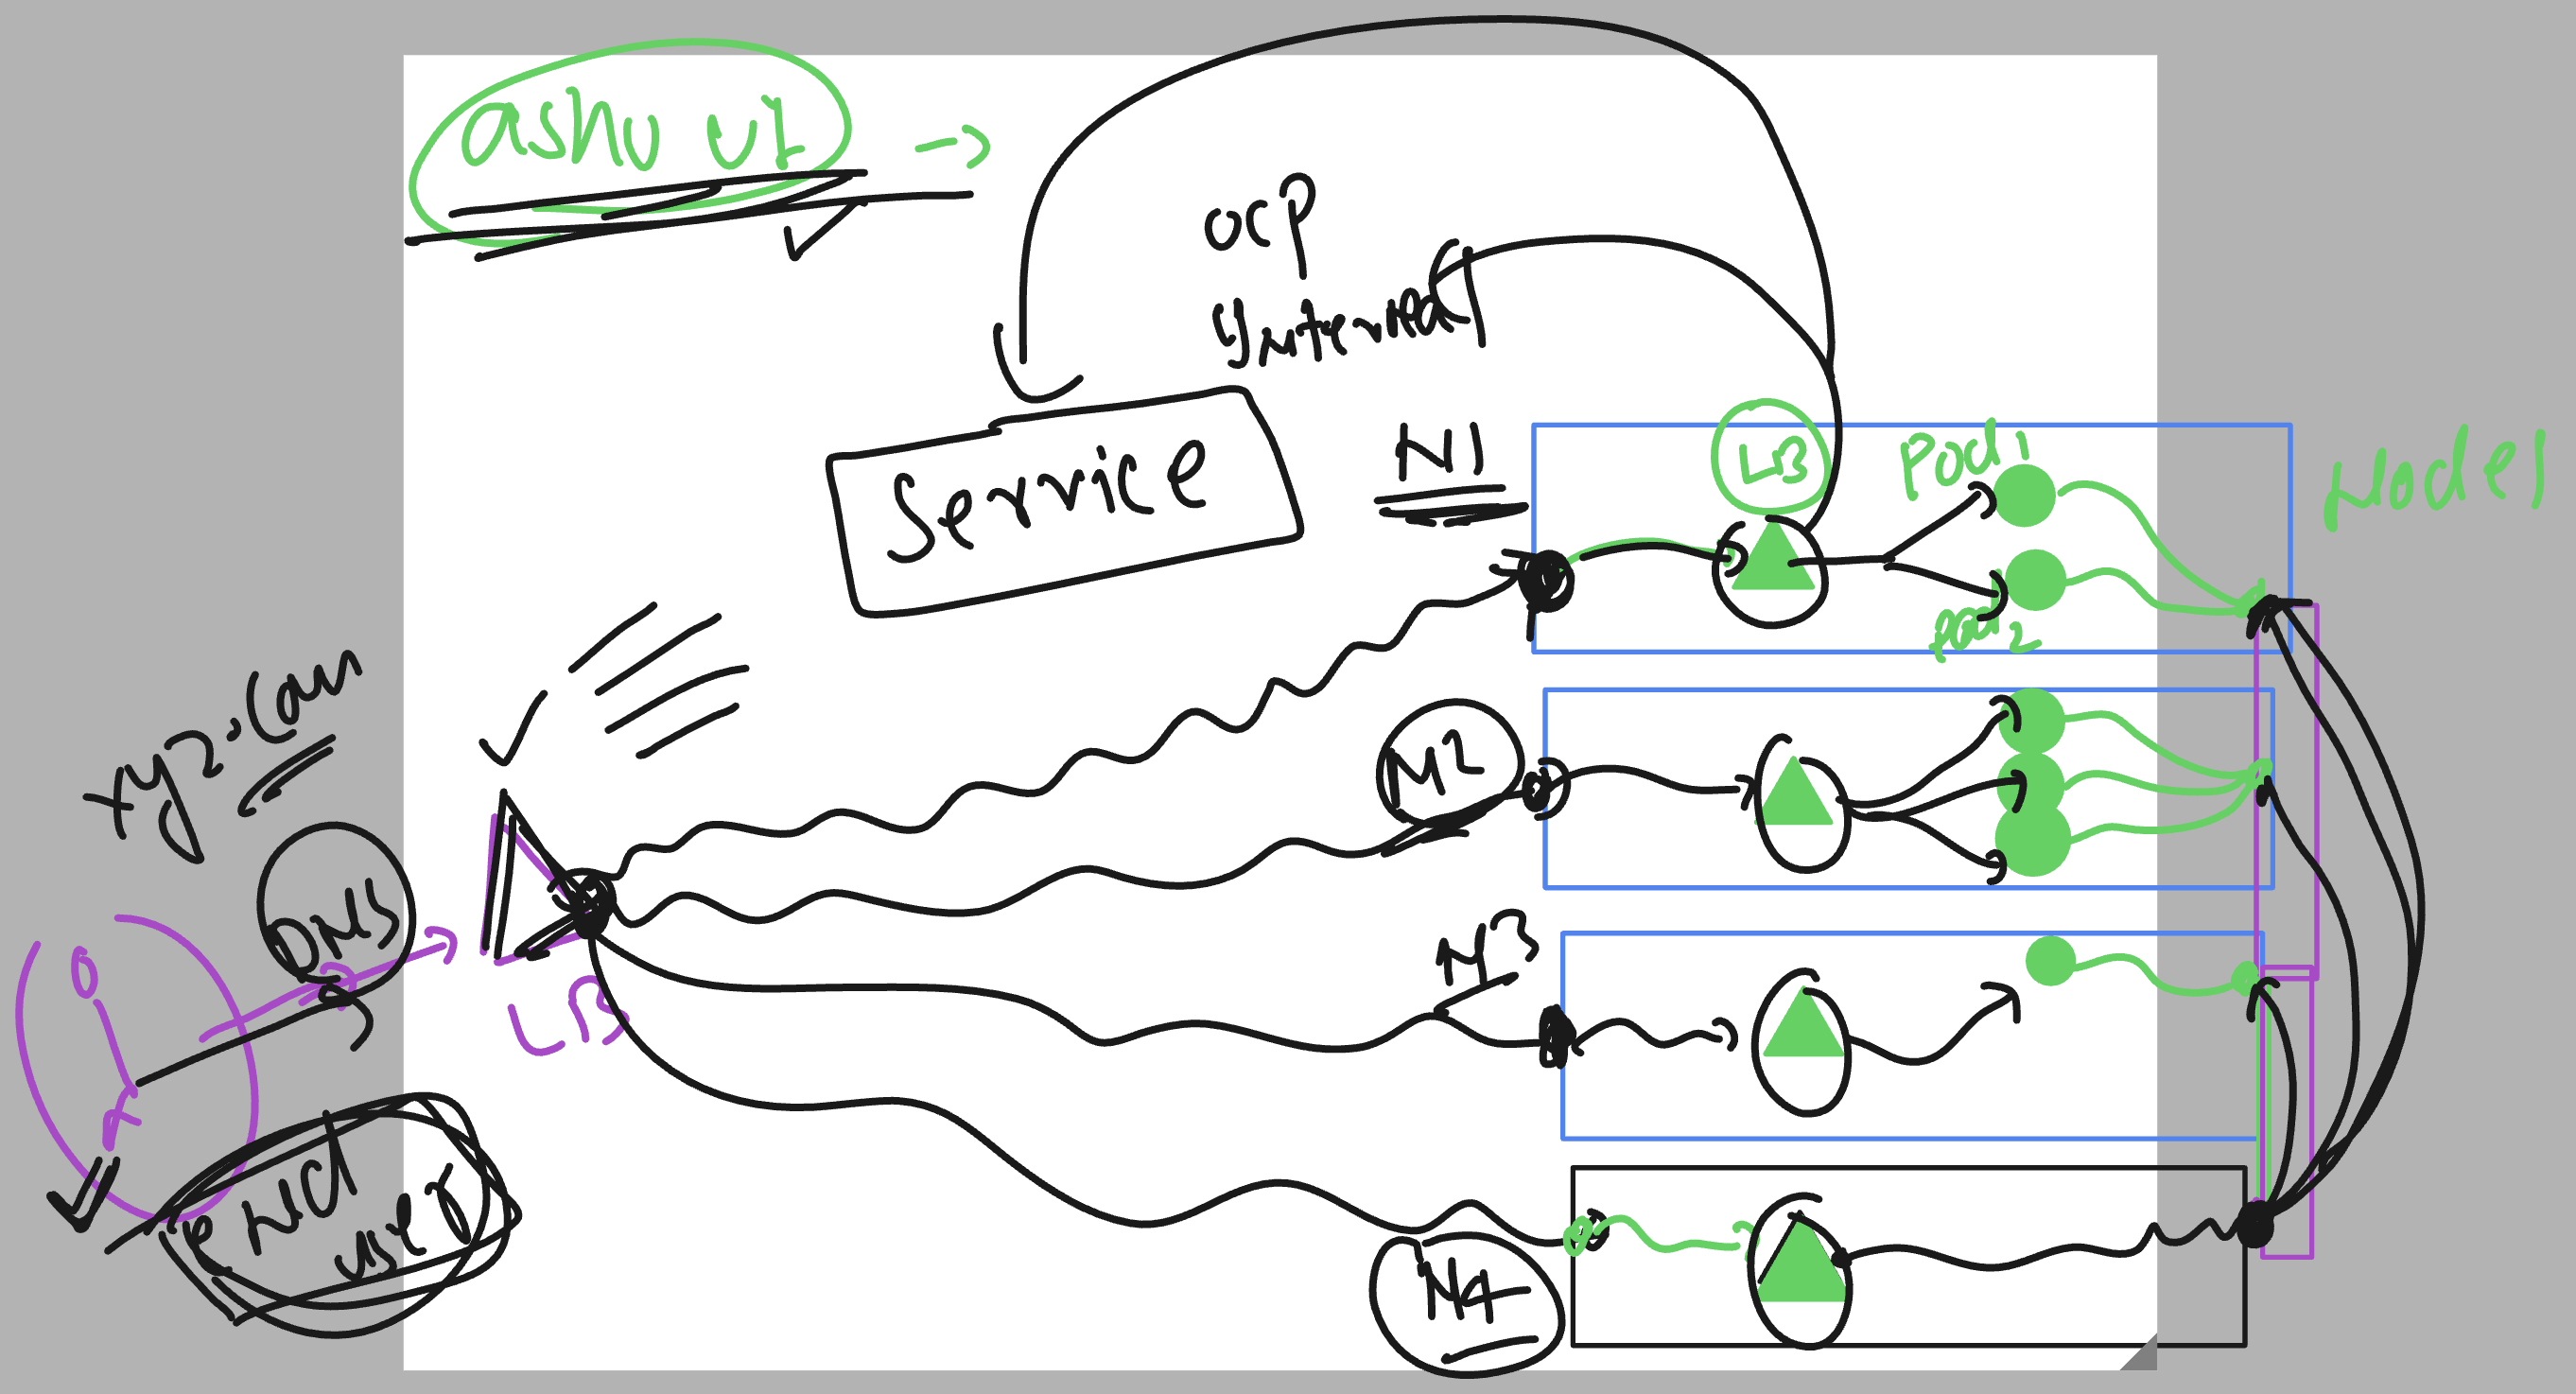 ashu UI
ocp
Internal
Service
N1
LB
Pod1
pod2
Nodes
xyz.com
N2
DNS
LB
N3
END
user
N4